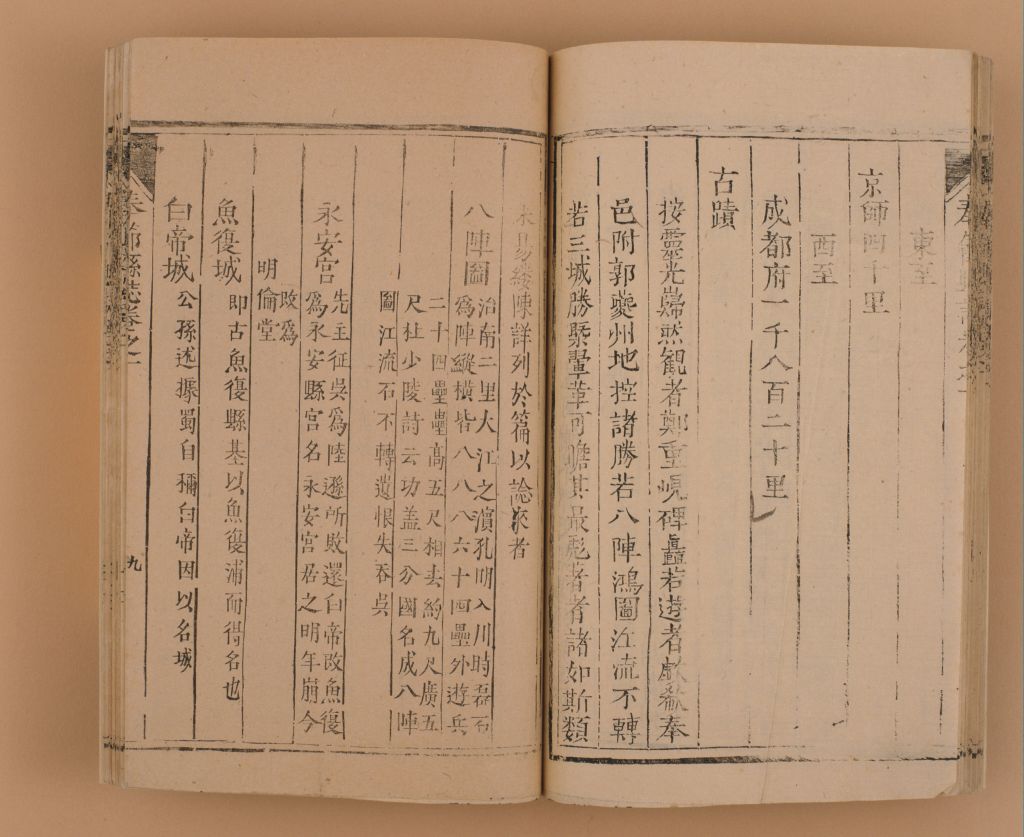 東至
京師四十里
西至
成都府一千八百二十里
古蹟
按靈光巋然觀者鄭重峴碑矗若遊者歔欷奉
邑附郭夔州地控諸勝若八陣鴻圖江流不轉
若三城勝槩翬革可瞻其最彪者者諸如斯類
未易縷陳詳列於篇以諗來者
八陣圖
治南二里大江之濵孔明入川時磊石
爲陣縱橫皆八八八六十四壘外遊兵
二十四壘壘高五尺相去約九尺廣五
尺杜少陵詩云功盖三分國名成八陣
圖江流石不轉遺恨失吞吳
永安宮
先主征吳爲陸遜所敗還白帝改魚復
爲永安縣宮名永安宮居之明年崩今
改爲
明倫堂
魚復城
即古魚復縣基以魚復浦而得名也
白帝城
公孫述據蜀自稱白帝因以名城
奉節縣誌卷之一
九